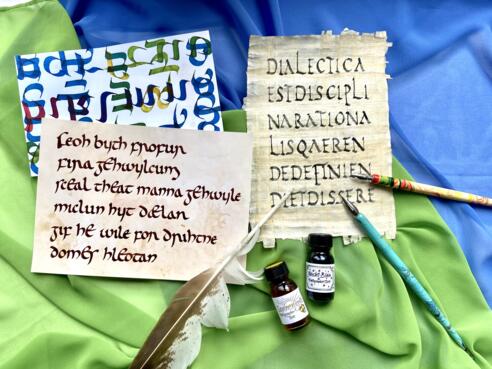 feoh byth frofur
fira gehwylcum
sceal theat manna gehwylc
miclun hyt dælan
gif he wile for drihtne
domes hleotan
DIALECTICA
ESTDISCIPLI
NARATIONA
LISQAEREN
DEDEFINIEN
DIETDISSERE